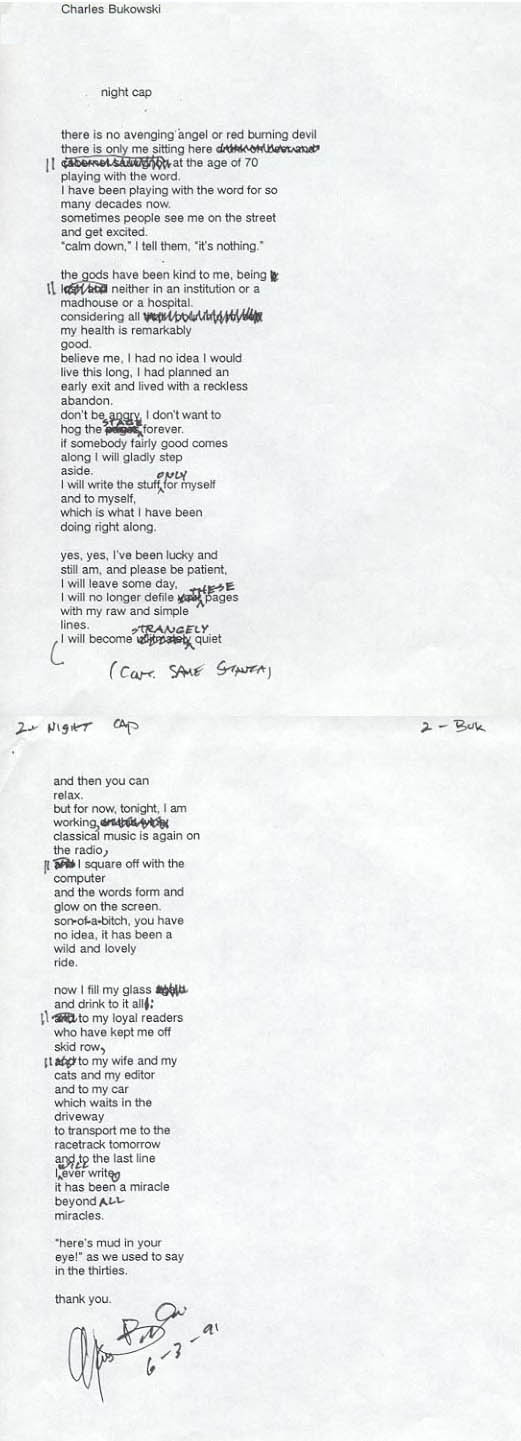 Charles Bukowski
night cap
there is no avenging angel or red burning devil
there is only me sitting here
at the age of 70
playing with the word.
I have been playing with the word for so
many decades now.
sometimes people see me on the street
and get excited.
"calm down," I tell them, "it's nothing."
the gods have been kind to me, being
neither in an institution or a
madhouse or a hospital.
considering all
my health is remarkably
good.
believe me, I had no idea I would
live this long, I had planned an
early exit and lived with a reckless
abandon.
don't be angry, I don't want to
hog the STAGE forever.
if somebody fairly good comes
along I will gladly step
aside.
I will write the stuff ONLY for myself
and to myself,
which is what I have been
doing right along.
yes, yes, I've been lucky and
still am, and please be patient,
I will leave some day,
I will no longer defile THESE pages
with my raw and simple
lines.
I will become STRANGELY quiet
(CONT. SAME STANZA)
2- NIGHT CAP 2 - BUK
and then you can
relax.
but for now, tonight, I am
working,
classical music is again on
the radio,
I square off with the
computer
and the words form and
glow on the screen.
son-of-a-bitch, you have
no idea, it has been a
wild and lovely
ride.
now I fill my glass
and drink to it all:
to my loyal readers
who have kept me off
skid row,
to my wife and my
cats and my editor
and to my car
which waits in the
driveway
to transport me to the
racetrack tomorrow
and to the last line
I WILL ever write,
it has been a miracle
beyond ALL
miracles.
"here's mud in your
eye!" as we used to say
in the thirties.
thank you.
6-3-91